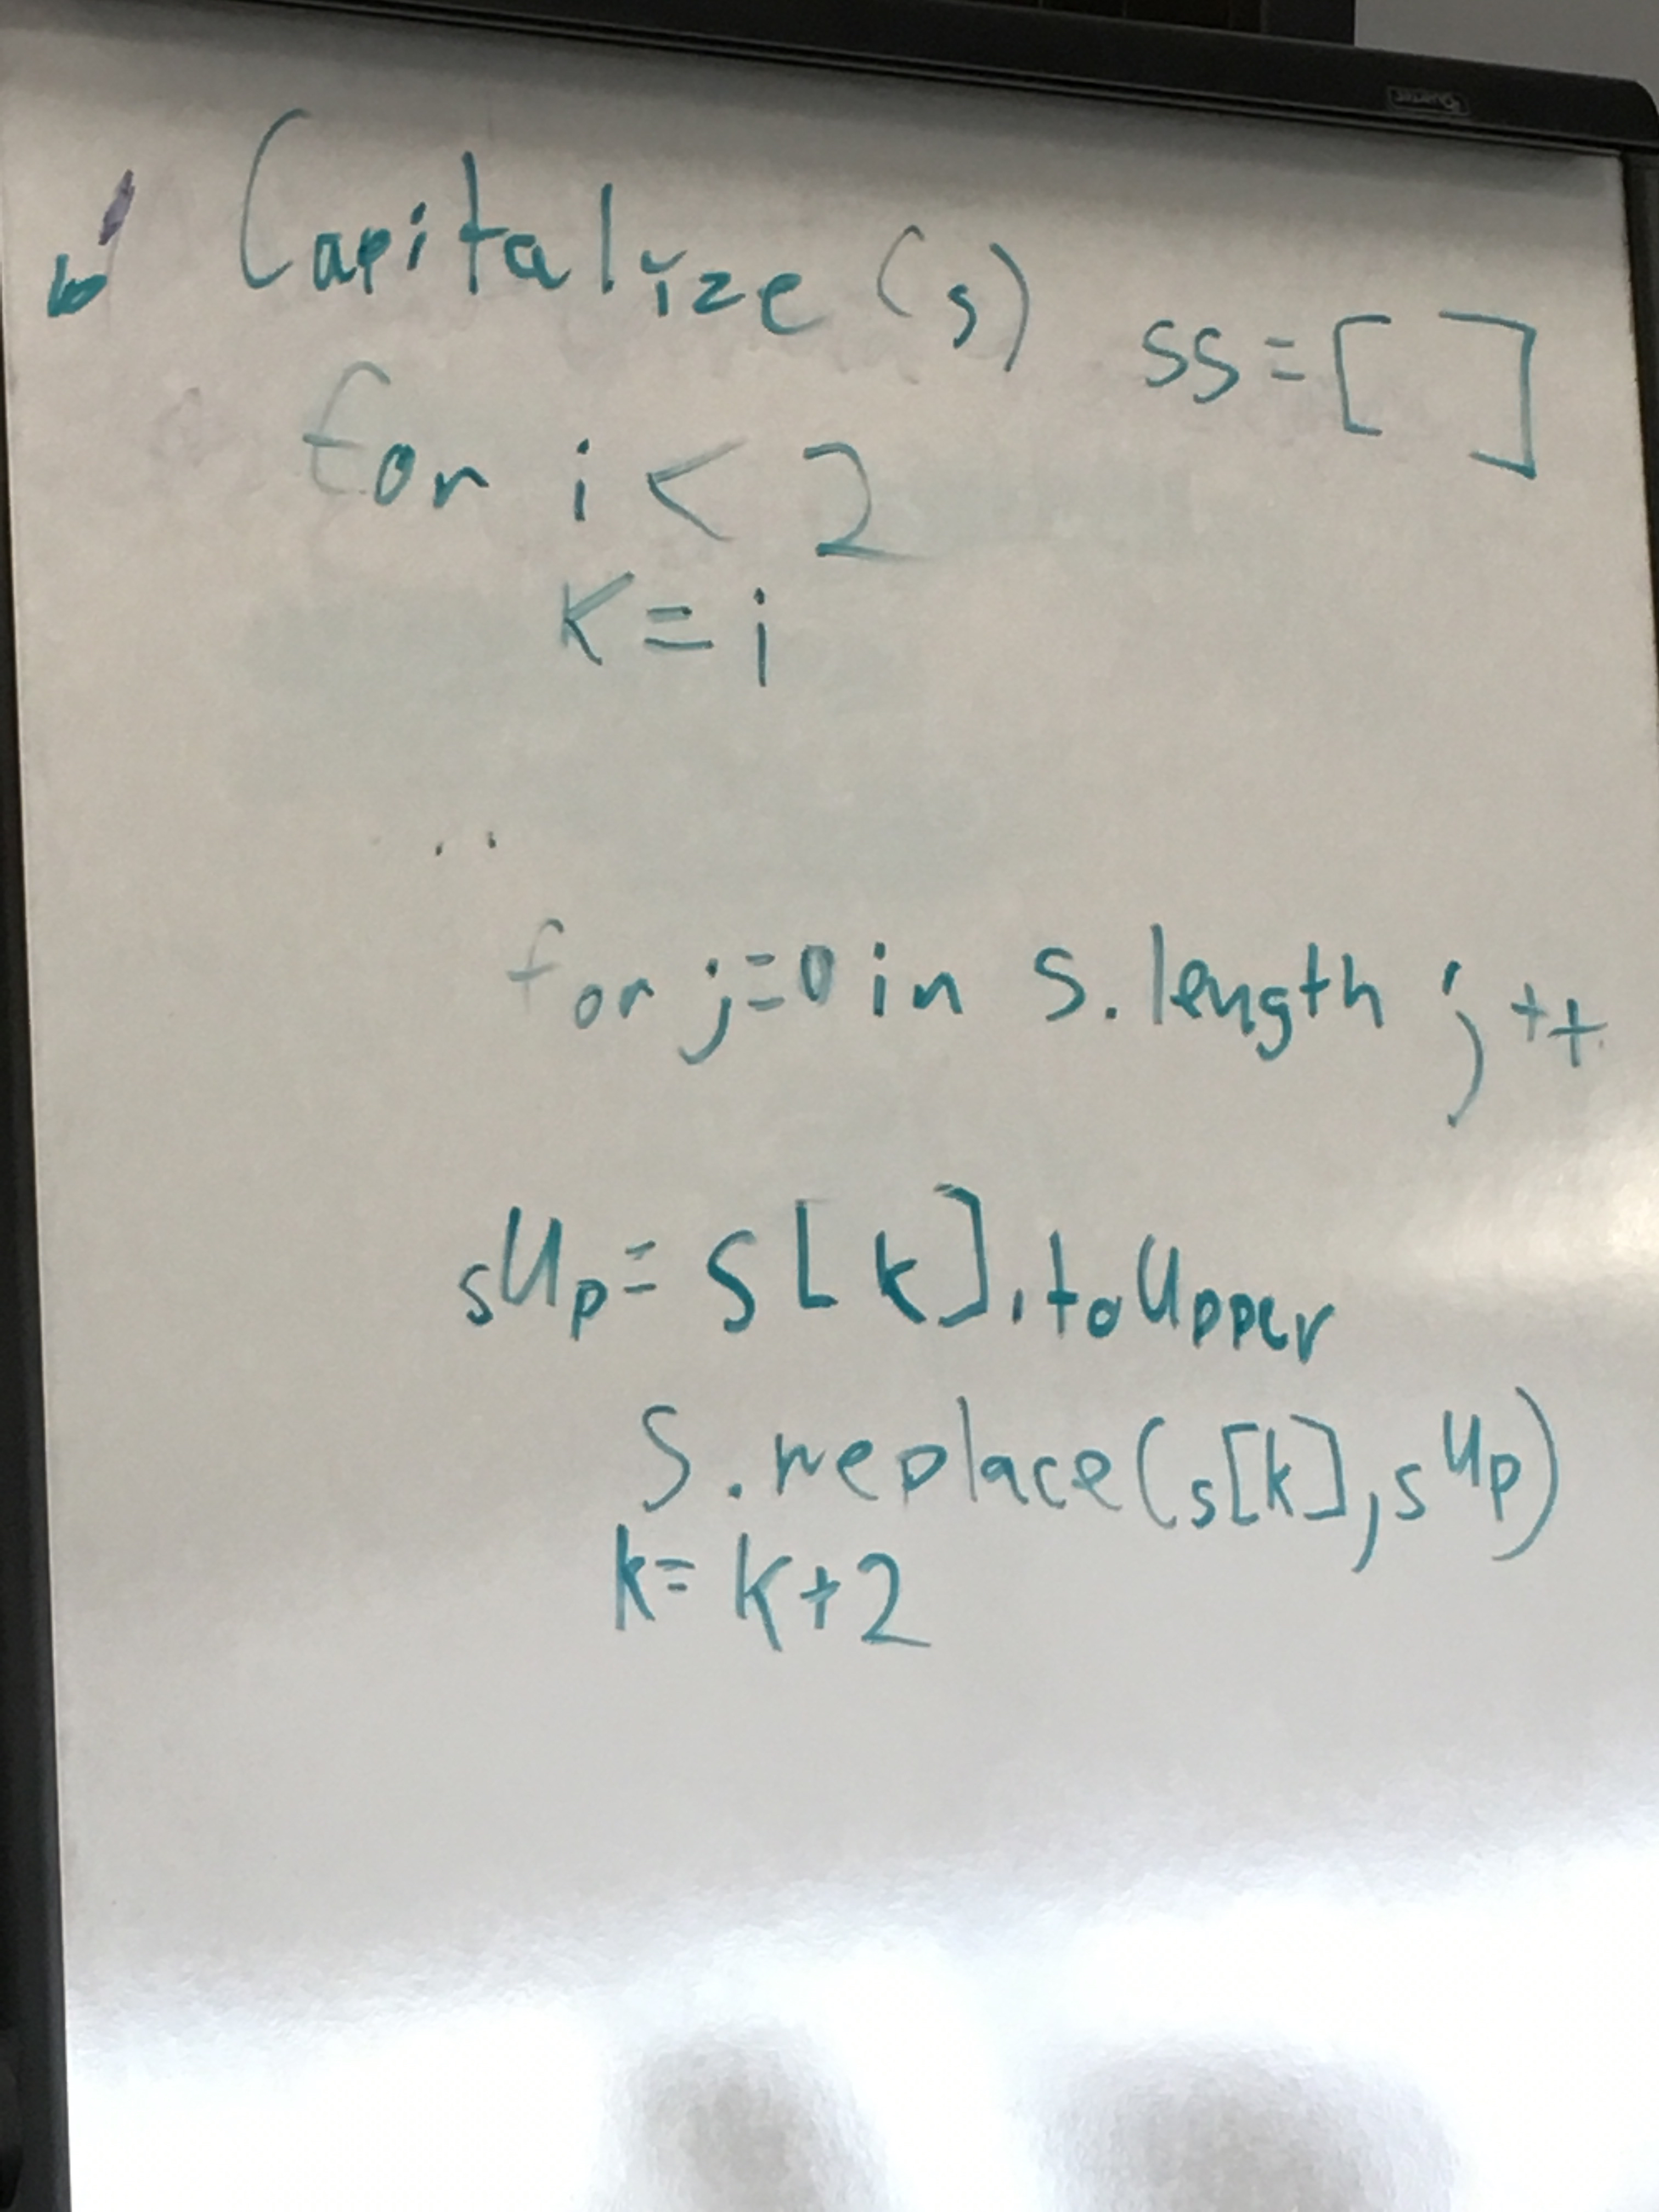 Capitalize (s)
ss = [ ]
for i < 2
K = i
for j=0 in s.length j++
sUp = s[k].toUpper
S.replace(s[k], sUp)
k = k+2
Quartet